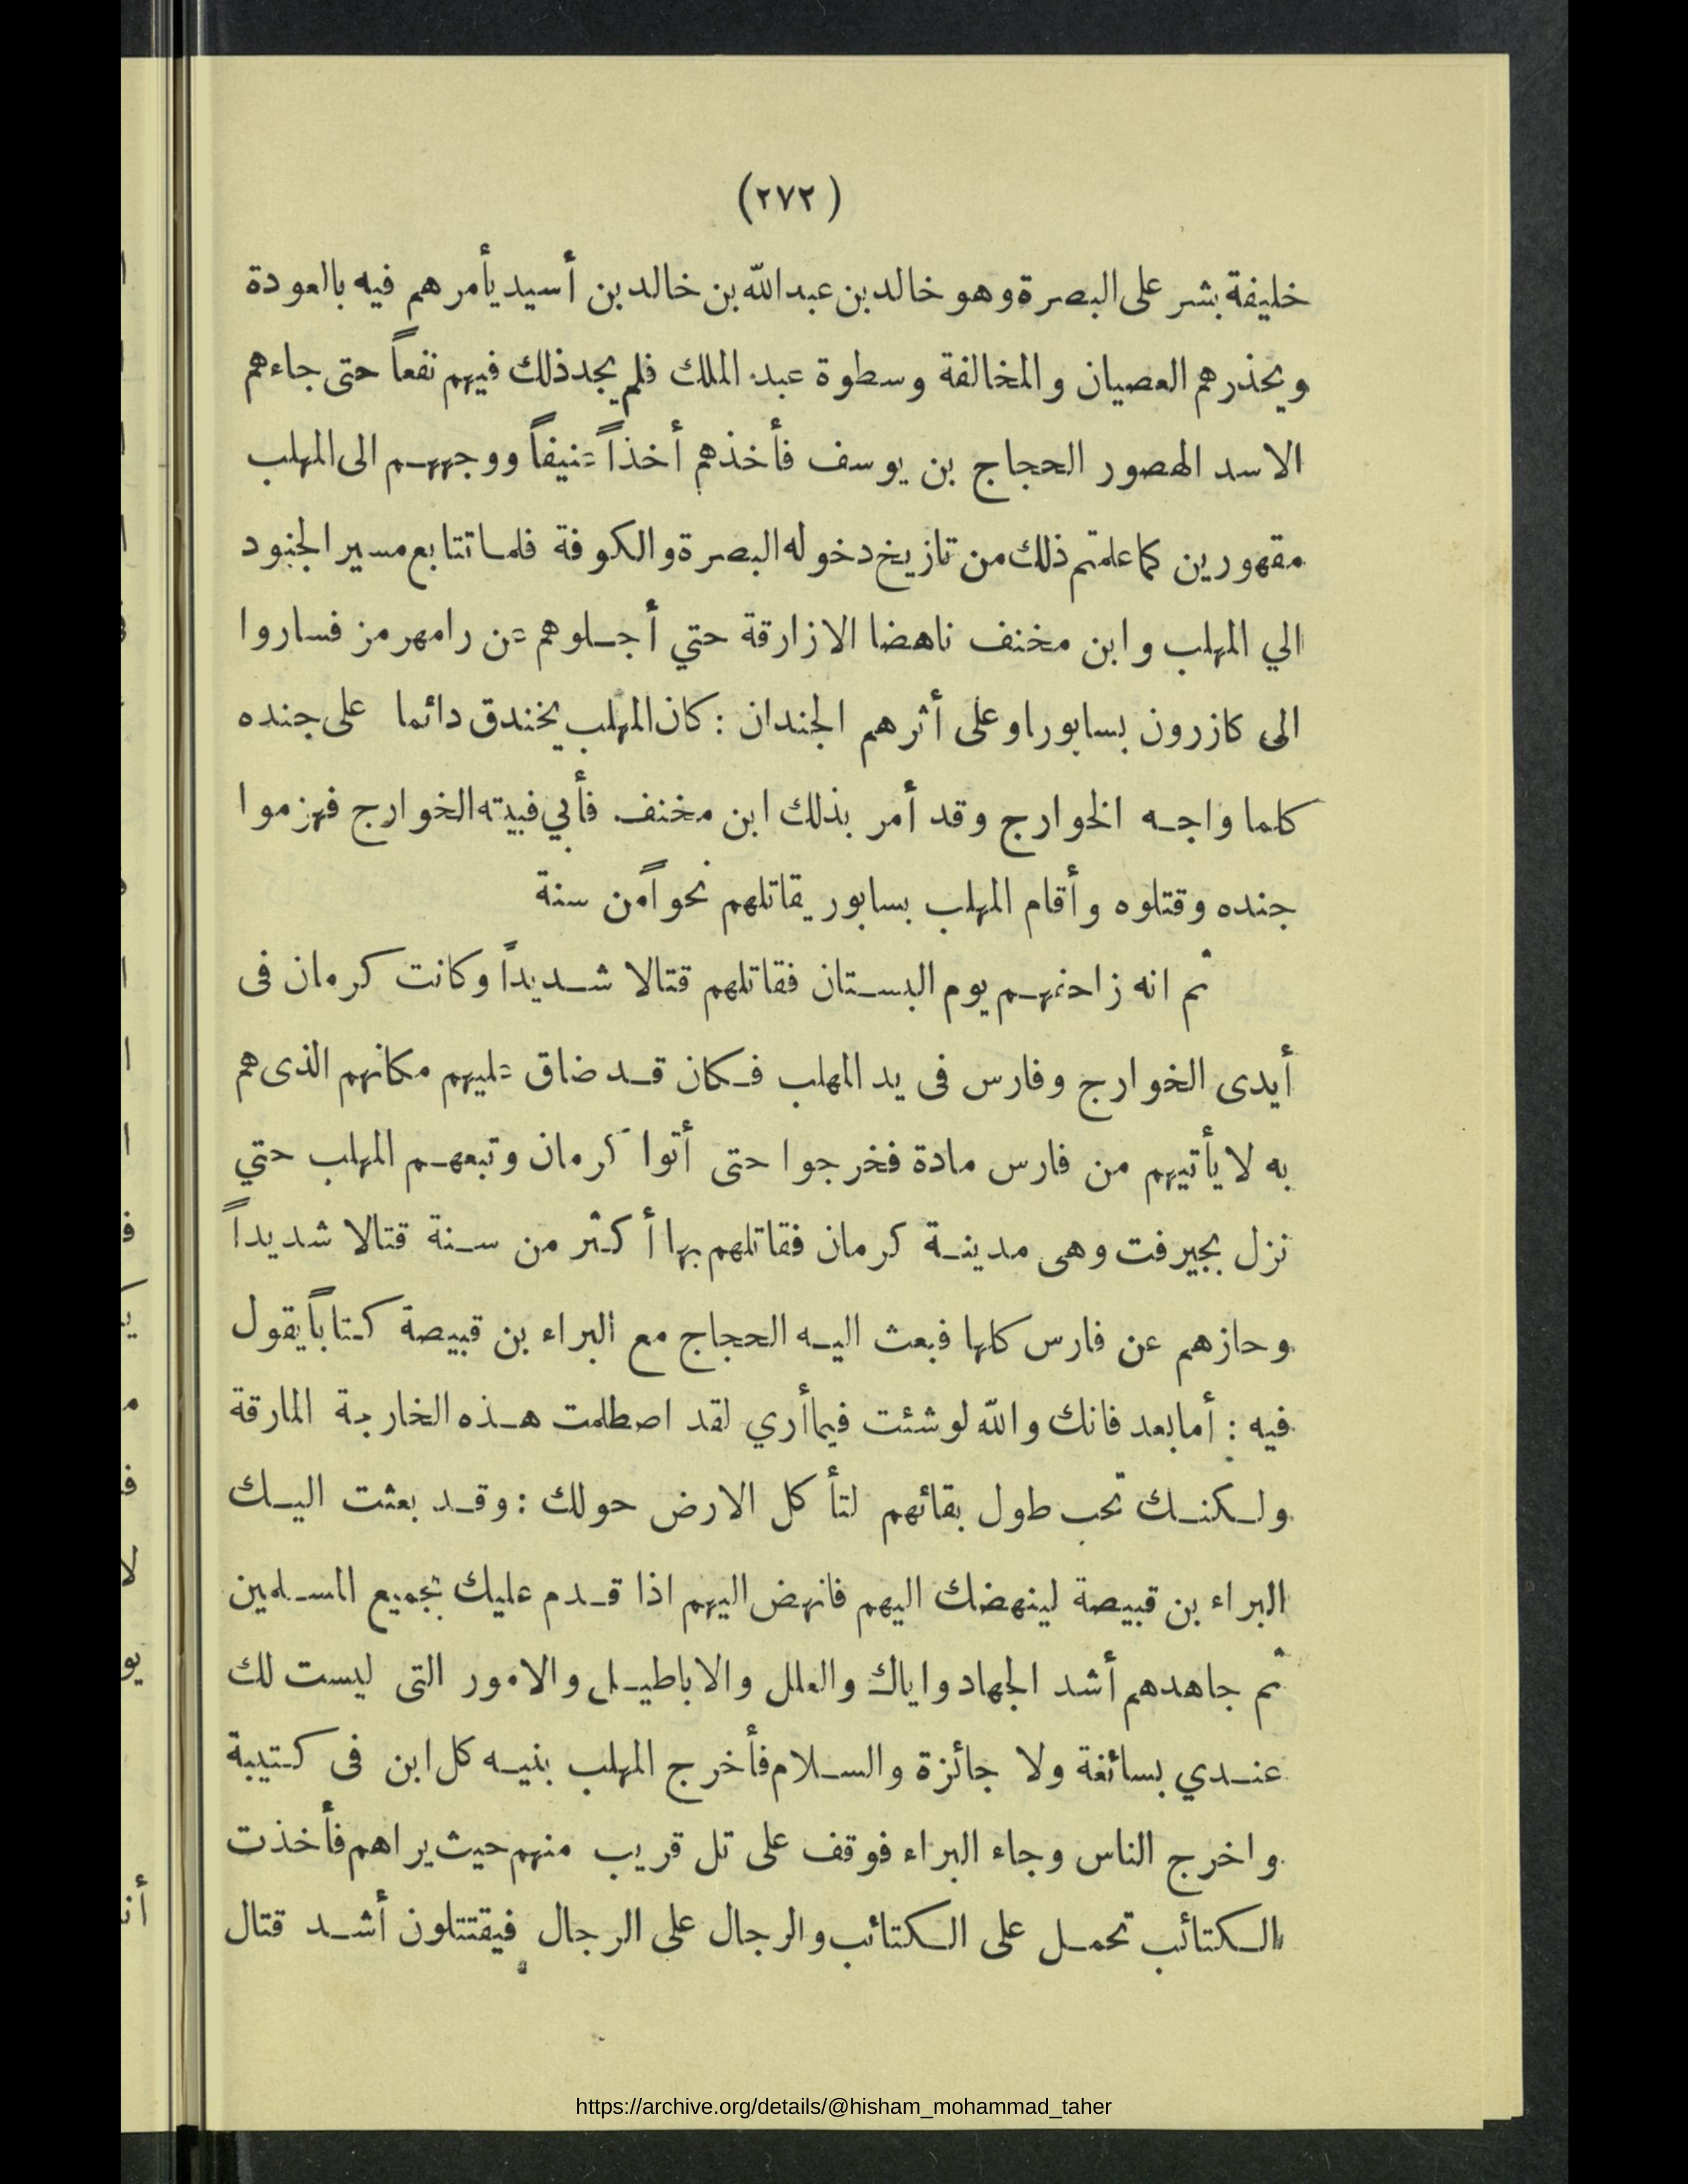 (٢٧٢)
خليفة بشر على البصرة وهو خالد بن عبد الله بن خالد بن أسيد يأمرهم فيه بالعودة
ويحذرهم العصيان والمخالفة وسطوة عبد الملك فلم يجد ذلك فيهم نفعاً حتى جاءهم
الاسد الهصور الحجاج بن يوسف فأخذهم أخذاً عنيفاً ووجههم الى المهلب
مقهورين كما علمتم ذلك من تاريخ دخوله البصرة والكوفة فلما تتابع مسير الجنود
الي المهلب وابن مخنف ناهضا الازارقة حتي أجلوهم عن رامهرمز فساروا
الى كازرون بسابورا وعلى أثرهم الجندان : كان المهلب يخندق دائما على جنده
كلما واجه الخوارج وقد أمر بذلك ابن مخنف فأبي فبيته الخوارج فهزموا
جنده وقتلوه وأقام المهلب بسابور يقاتلهم نحواً من سنة
ثم انه زاحفهم يوم البستان فقاتلهم قتالا شديداً وكانت كرمان فى
أيدى الخوارج وفارس فى يد المهلب فكان قد ضاق عليهم مكانهم الذى هم
به لا يأتيهم من فارس مادة فخرجوا حتى أتوا كرمان وتبعهم المهلب حتي
نزل بجيرفت وهى مدينة كرمان فقاتلهم بها أكثر من سنة قتالا شديداً
وحازهم عن فارس كلها فبعث اليه الحجاج مع البراء بن قبيصة كتاباً يقول
فيه : أما بعد فانك والله لو شئت فيما أري لقد اصطلمت هذه الخارجة المارقة
ولكنك تحب طول بقائهم لتأكل الارض حولك : وقد بعثت اليك
البراء بن قبيصة لينهضك اليهم فانهض اليهم اذا قدم عليك بجميع المسلمين
ثم جاهدهم أشد الجهاد واياك والعلل والاباطيل والامور التى ليست لك
عندي بسائغة ولا جائزة والسلام فأخرج المهلب بنيه كل ابن فى كتيبة
واخرج الناس وجاء البراء فوقف على تل قريب منهم حيث يراهم فأخذت
الكتائب تحمل على الكتائب والرجال على الرجال فيقتتلون أشد قتال
https://archive.org/details/@hisham_mohammad_taher